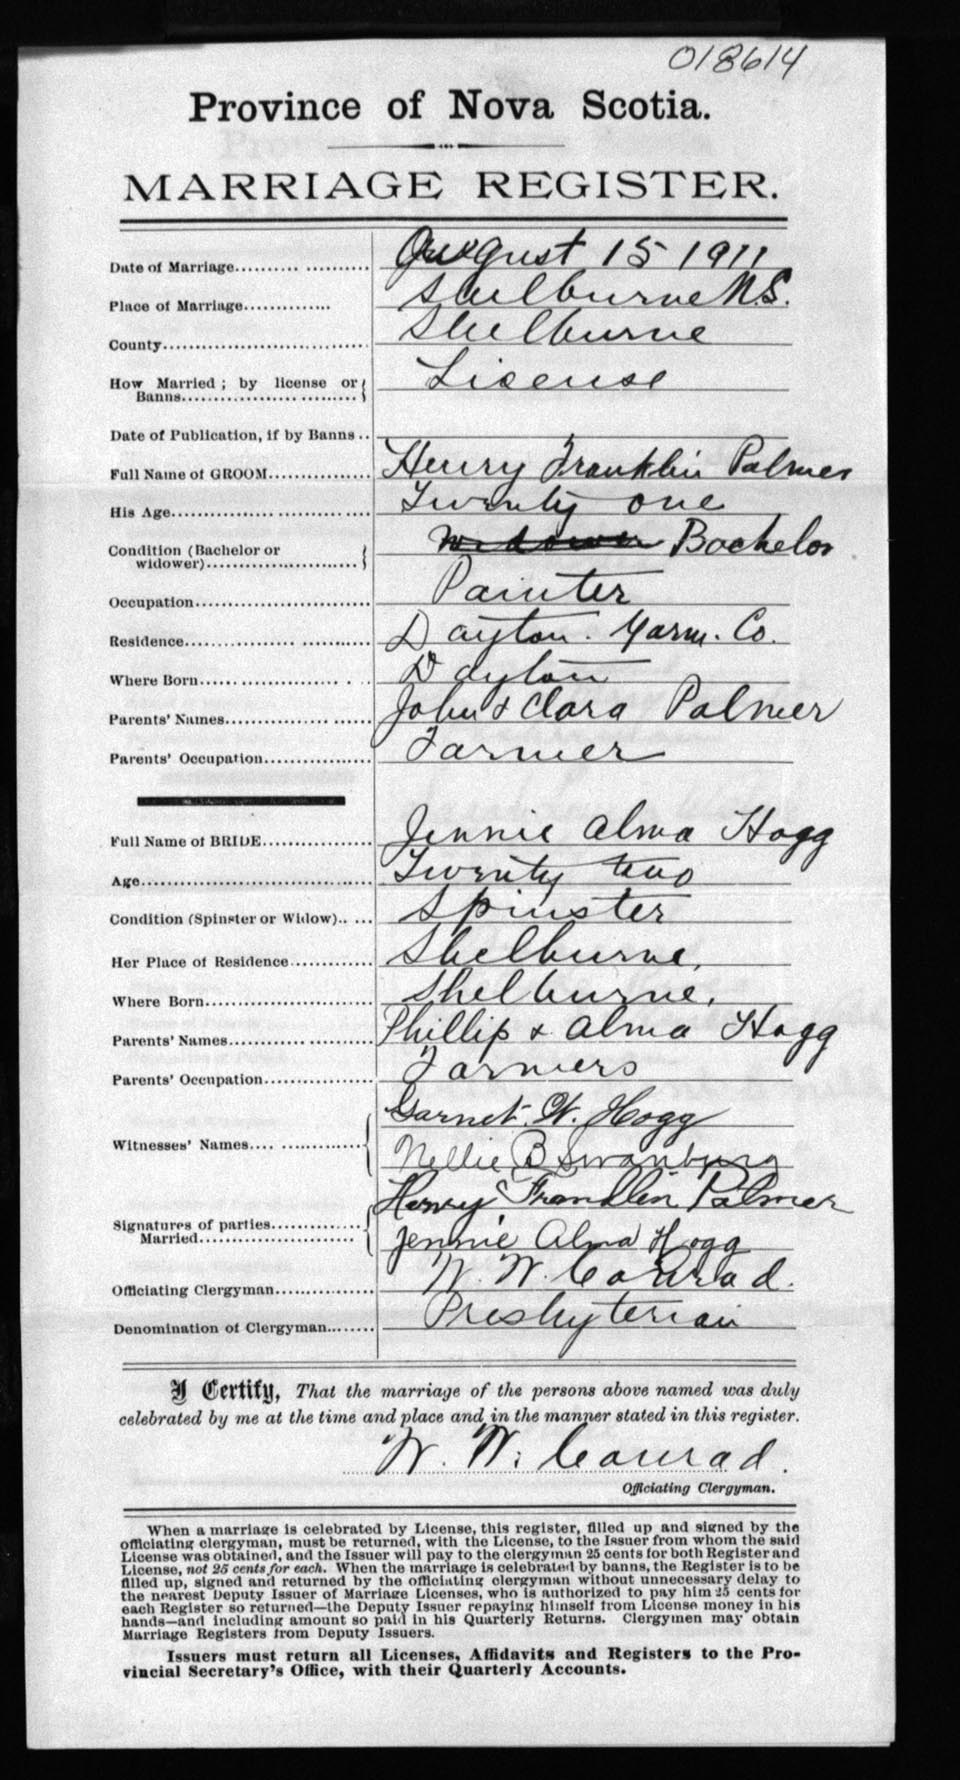 018614
Province of Nova Scotia.
MARRIAGE REGISTER.
Date of Marriage.......... ............ August 15 1911
Place of Marriage............. Shelburne N.S.
County.................................. Shelburne
How Married ; by license or License
Banns.....................
Date of Publication, if by Banns ..
Full Name of GROOM................ Henry Franklin Palmer
His Age................................ Twenty one
Condition (Bachelor or widower Bachelor
widower)............................
Occupation............................. Painter
Residence............................... Dayton. Yarm. Co.
Where Born............................. Dayton
Parents' Names........................ John & Clara Palmer
Parents' Occupation.................. Farmer
Full Name of BRIDE................. Jennie Alma Hogg
Age........................................ Twenty two
Condition (Spinster or Widow)..... Spinster
Her Place of Residence............. Shelburne,
Where Born............................. Shelburne,
Parents' Names........................ Phillip & Alma Hogg
Parents' Occupation.................. Farmers
Garnet. W. Hogg
Witnesses' Names.... ..............
Nellie B Swanburg
Henry Franklin Palmer
Signatures of parties...............
Married.............................
Jennie Alma Hogg
Officiating Clergyman............... W. W. Conrad.
Denomination of Clergyman........ Presbyterian
I Certify, That the marriage of the persons above named was duly
celebrated by me at the time and place and in the manner stated in this register.
W. W. Conrad.
Officiating Clergyman.
When a marriage is celebrated by License, this register, filled up and signed by the
officiating clergyman, must be returned, with the License, to the Issuer from whom the said
License was obtained, and the Issuer will pay to the clergyman 25 cents for both Register and
License, not 25 cents for each. When the marriage is celebrated by banns, the Register is to be
filled up, signed and returned by the officiating clergyman without unnecessary delay to
the nearest Deputy Issuer of Marriage Licenses, who is authorized to pay him 25 cents for
each Register so returned—the Deputy Issuer repaying himself from License money in his
hands—and including amount so paid in his Quarterly Returns. Clergymen may obtain
Marriage Registers from Deputy Issuers.
Issuers must return all Licenses, Affidavits and Registers to the Pro-
vincial Secretary's Office, with their Quarterly Accounts.